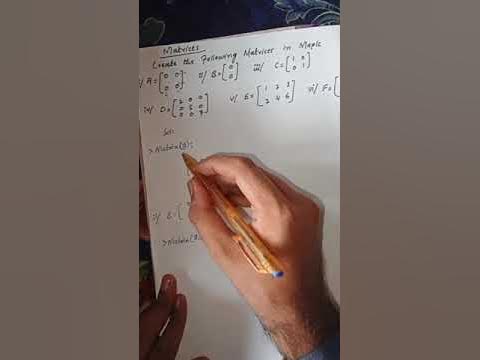 Matrices
Create the Following Matrices in Maple
i/ A = [0 0; 0 0] ii/ B = [0; 0] iii/ C = [1 0; 0 1]
iv/ D = [2 0 0; 0 5 0; 0 0 7] v/ E = [1 2 3; 2 4 6] vi/ F = [
Sol:
> Matrix(2);
ii/ B = [
> Matrix(2